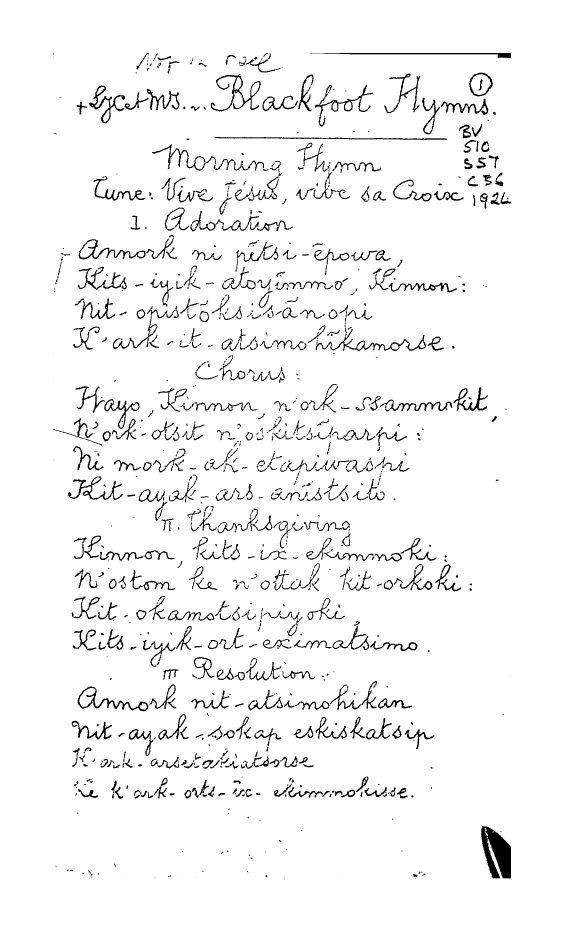 Not in
Blackfoot Hymns.
1
BV
510
S57
C36
1924
Morning Hymn
Tune: Vive Jésus, vive sa Croix
1. Adoration
Annork ni pĭtsi-ēpowa,
Kits-iyik-atoyĭmmo, Kinnon:
Nit-opistŏksisānopi
K'ark-it-atsimohĭkamorse.
Chorus:
Hayo, Kinnon, n'ork-ssammokit,
N'ork-otsit n'oskitsĭparpi:
Ni mork-ak-etapiwaspi
Kit-ayak-ars-anĭstsito.
II. Thanksgiving
Kinnon, kits-ix-ekimmoki:
N'ostom ke n'ottak kit-orkoki:
Kit-okamotsipiyoki,
Kits-iyik-ort-eximatsimo.
III Resolution.
Annork nit-atsimohikan
Nit-ayak-sokap eskiskatsip
K'ark-arsetakiatsorse
Ke k'ark-orts-ix-ekimmokisse.